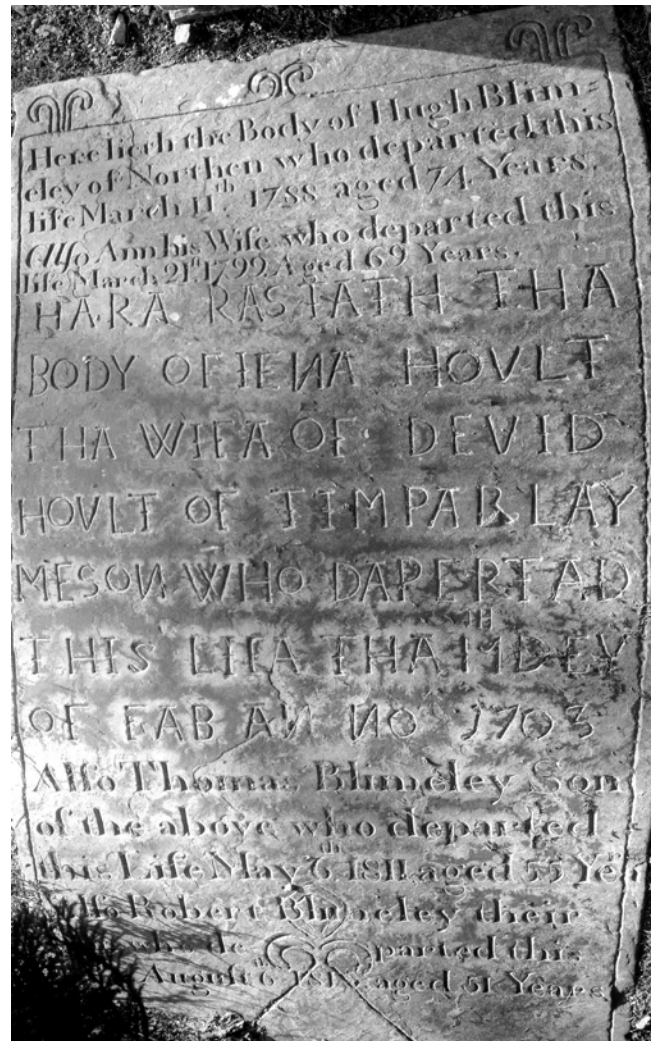 Here lieth the Body of Hugh Blim=
eley of Northen who departed this
life March 11th. 1788 aged 74 Years.
Also Ann his Wife who departed this
life March 21st 1799 Aged 69 Years.
HARA RASTATH THA
BODY OF IENA HOVLT
THA WIFA OF DEVID
HOVLT OF TIMPARLAY
MESON WHO DAPERTAD
THIS LIFA THA DEY
OF FAB AN NO 1703
Also Thomas Blimeley Son
of the above who departed
this Life May 6th 1811 aged 55 Yers
Also Robert Blimeley their
who departed this
August 6 aged 51 Years